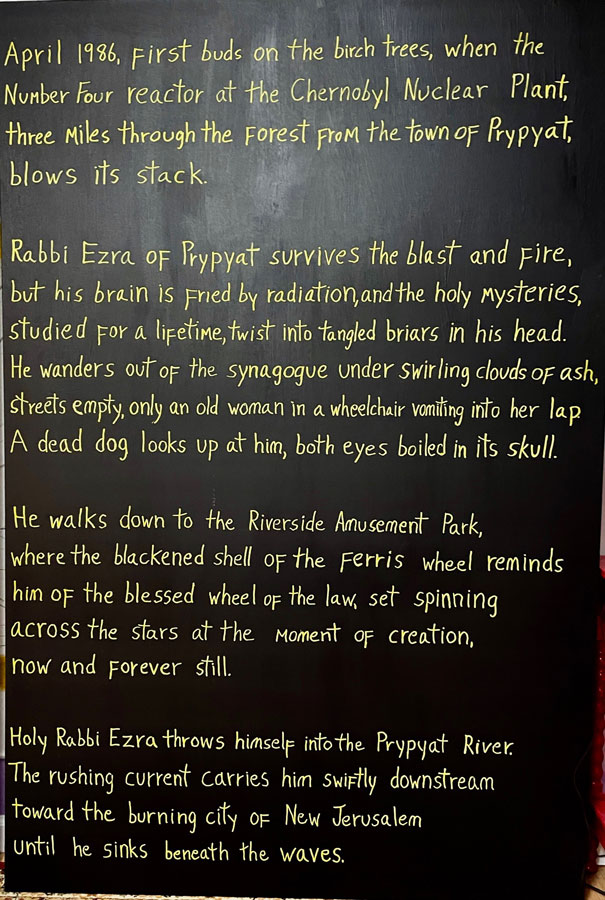 April 1986, First buds on the birch trees, when the
Number Four reactor at the Chernobyl Nuclear Plant,
three Miles through the Forest From the town of Prypyat,
blows its stack.
Rabbi Ezra of Prypyat survives the blast and Fire,
but his brain is Fried by radiation, and the holy Mysteries,
studied For a lifetime, twist into tangled briars in his head.
He wanders out of the synagogue under swirling clouds of ash,
streets empty, only an old woman in a wheelchair vomiting into her lap
A dead dog looks up at him, both eyes boiled in its skull.
He walks down to the Riverside Amusement Park,
where the blackened shell of the Ferris wheel reminds
him of the blessed wheel of the law, set spinning
across the stars at the Moment of creation,
now and Forever still.
Holy Rabbi Ezra throws himself into the Prypyat River.
The rushing current carries him swiftly downstream
toward the burning city of New Jerusalem
until he sinks beneath the waves.